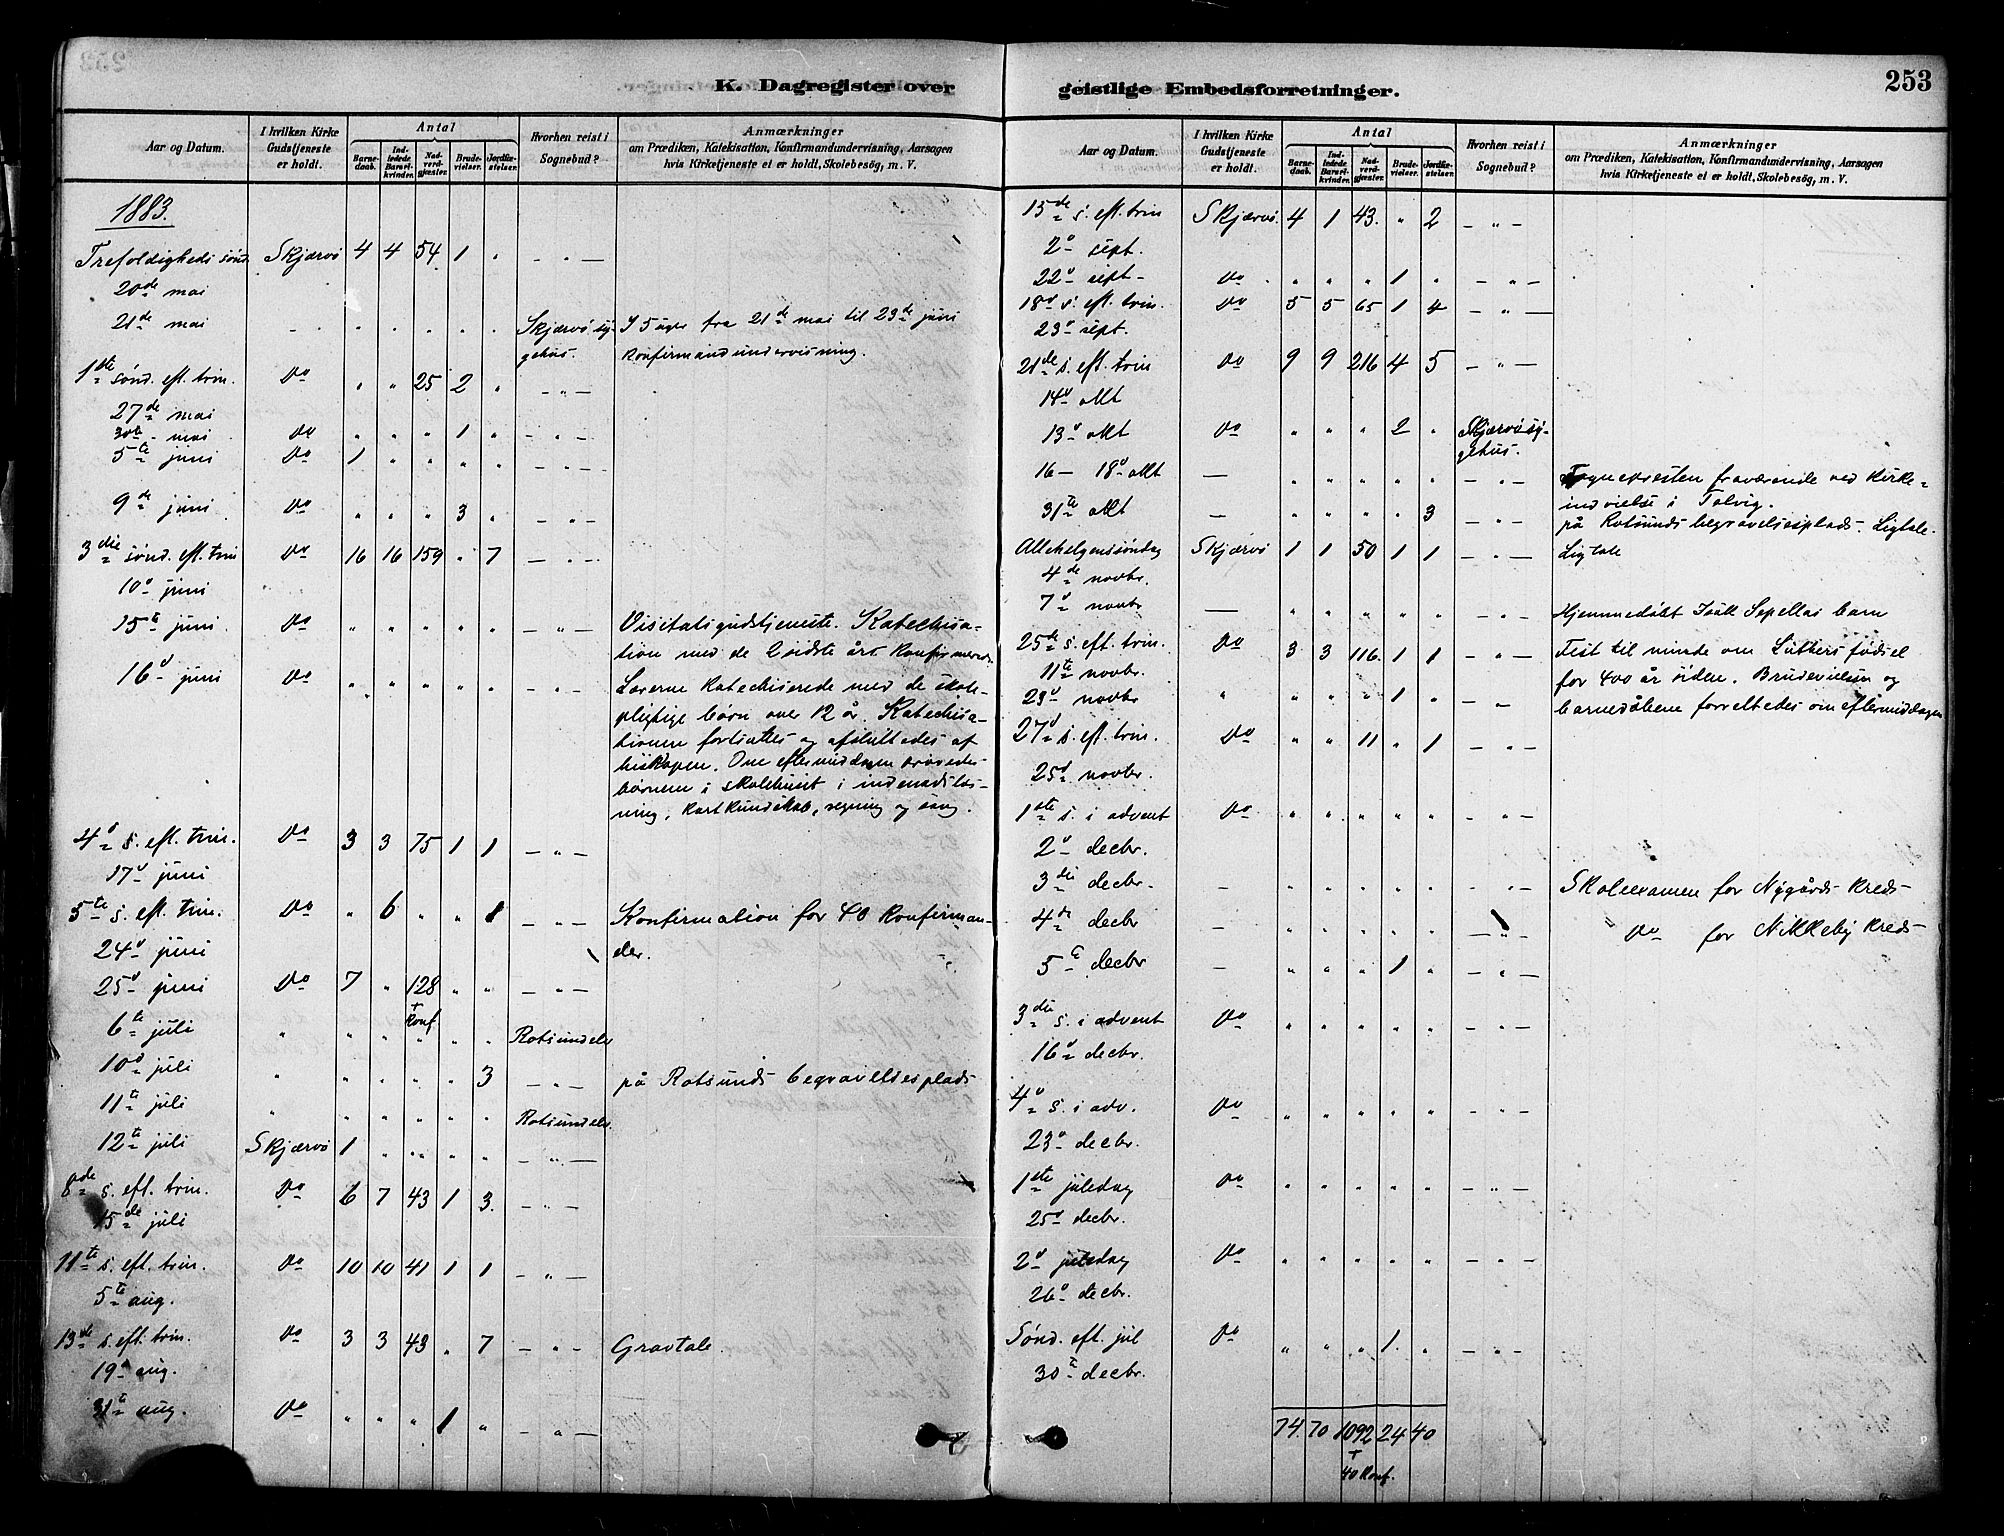 K. Dagregister over
Aar og Datum.
I hvilken Kirke Gudstjeneste er holdt.
Antal
Barnedaab.
Indledede Barselkvinder.
Nadverdgjester.
Brudevielser.
Jordfæstelser.
Hvorhen reist i Sognebud?
Anmærkninger
om Prædiken, Katekisation, Konfirmandundervisning, Aarsagen
hvis Kirketjeneste ei er holdt, Skolebesøg, m. V.
1883.
Trefoldigheds sønd. Skjærvø 4 4 54 1 " — " —
20de mai
21de mai " " " " " Skjærvø sy- I 5 uger fra 21de mai til 23de juni
gehus. konfirmandundervisning.
1te sønd. eft. trin. Do " " 25 2 " — " —
27de mai
30te mai Do " " " 1 " — " —
5te juni Do 1 " " " " — " —
9de juni Do " " " 3 " — " —
3die sønd. eft. trin Do 16 16 159 " 7 — " —
10d juni
15te juni Do " " " " " — " — Visitatsgudstjeneste. Katechisa-
tion med de 2 sidste års konfirmerede
16d juni Do " " " " " — " — Lærerne katechiserede med de skole-
pligtige børn over 12 år. Katechisa-
tionen fortsattes og afsluttedes af
biskopen. Om eftermiddagen prøvedes
børnene i skolehuset i indenadslæs-
ning, kartkundskab, regning og sang.
4d s. eft. trin. Do 3 3 75 1 1 — " —
17d juni
5te s. eft. trin. Do " 6 " " 1 — " — Konfirmation for 40 konfirman-
24d juni der.
25d juni Do 7 " 128 " " — " —
+ Konf.
6te juli " " " " " " Rotsundelv
10d juli " " " " " 3 — " — på Rotsunds begravelsesplads
11te juli " " " " " " Rotsundelv
12te juli Skjærvø 1 " " " " — " —
8de s. eft. trin. Do 6 7 43 1 3. — " —
15de juli
11te s. eft. trin. Do 10 10 41 1 1 — " —
5te aug.
13de s. eft. trin. Do 3 3 43 " 7 — " — Gravtale.
19d aug.
31te aug. Do " " " 1 " — " —
geistlige Embedsforretninger.
253
Aar og Datum.
I hvilken Kirke Gudstjeneste er holdt.
Antal
Barnedaab.
Indledede Barselkvinder.
Nadverdgjester.
Brudevielser.
Jordfæstelser.
Hvorhen reist i Sognebud?
Anmærkninger
om Prædiken, Katekisation, Konfirmandundervisning, Aarsagen
hvis Kirketjeneste ei er holdt, Skolebesøg, m. V.
15de s. eft. trin Skjærvø. 4 1 43. " 2 — " —
2d sept.
22d sept. Do " " " 1 " — " —
18d s. eft. trin. Do 5 5 65 1 4 — " —
23d sept.
21de s. eft. trin Do 9 9 216 4 5 — " —
14d okt
13d okt Do " " " 2 " Skjærvø sy-
gehus.
16 — 18d okt — " " " " " — " — Sognepresten fraværende ved kirke-
indvielse i Talvig.
31te okt — " " " " 3 — " — på Rotsunds begravelsesplads. Ligtale.
Allehelgenssøndag Skjærvø 1 1 50 1 1 — " — Ligtale
4de novbr.
7d novbr — " " " " " — " — Hjemmedøbt Isak Seppalas barn
25de s. eft. trin. Do 3 3 116. 1 1 — " — Fest til minde om Luthers fødsel
11te novbr. for 400 år siden. Brudevielsen og
23d novbr " " " " 1 " — " — barnedåbene forrettedes om eftermiddagen
27d s. eft. trin. Do " " 11 " 1 — " —
25d novbr.
1ste s. i advent Do " " " " " — " —
2d decbr.
3die decbr. — " " " " " — " — Skoleexamen for Nygårds kreds —
4de decbr — " " " " " — " — Do for Nikkeby kreds —
5te decbr — " " " 1 " — " —
3die s. i advent Do " " " " " — " —
16d decbr.
4d s. i adv. Do " " " " " — " —
23d decbr.
1ste juledag Do " " " " " — " —
25d decbr.
2d juledag Do " " " " " — " —
26d decbr.
Sønd. eft. jul Do " " " 1. " — " —
30te decbr.
74. 70 1092 24 40
+
40 Konf.